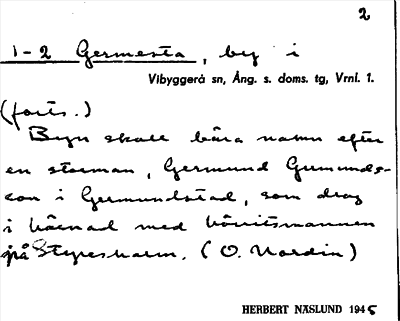 2
1-2 Germesta, by i
Vibyggerå sn, Ång. s. doms. tg, Vrnl. 1.
(forts.)
Byn skall bära namn efter
en storman, Germund Gumunds-
son i Germundstad, som drog
i härnad med hövitsmannen
på Styresholm. (O. Nordin)
HERBERT NÄSLUND 1945